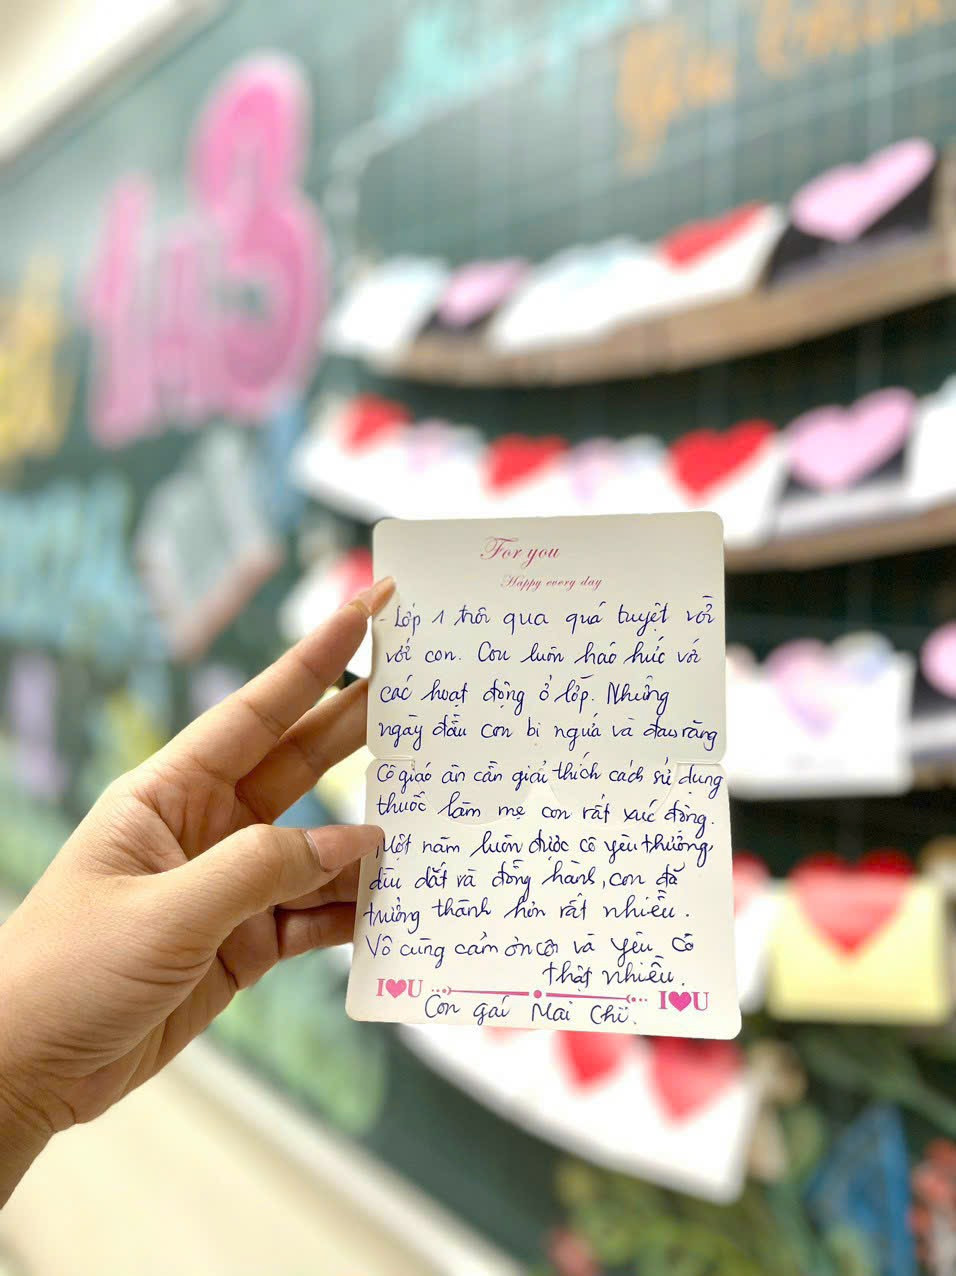 1A3
For you
Happy every day
- Lớp 1 trôi qua quá tuyệt vời
với con. Con luôn háo hức với
các hoạt động ở lớp. Những
ngày đầu con bị ngứa và đau răng
Cô giáo ân cần giải thích cách sử dụng
thuốc làm mẹ con rất xúc động.
Một năm luôn được cô yêu thương,
dìu dắt và đồng hành, con đã
trưởng thành hơn rất nhiều.
Vô cùng cảm ơn cô và yêu cô
thật nhiều.
I♥U I♥U
Con gái Mai Chi.